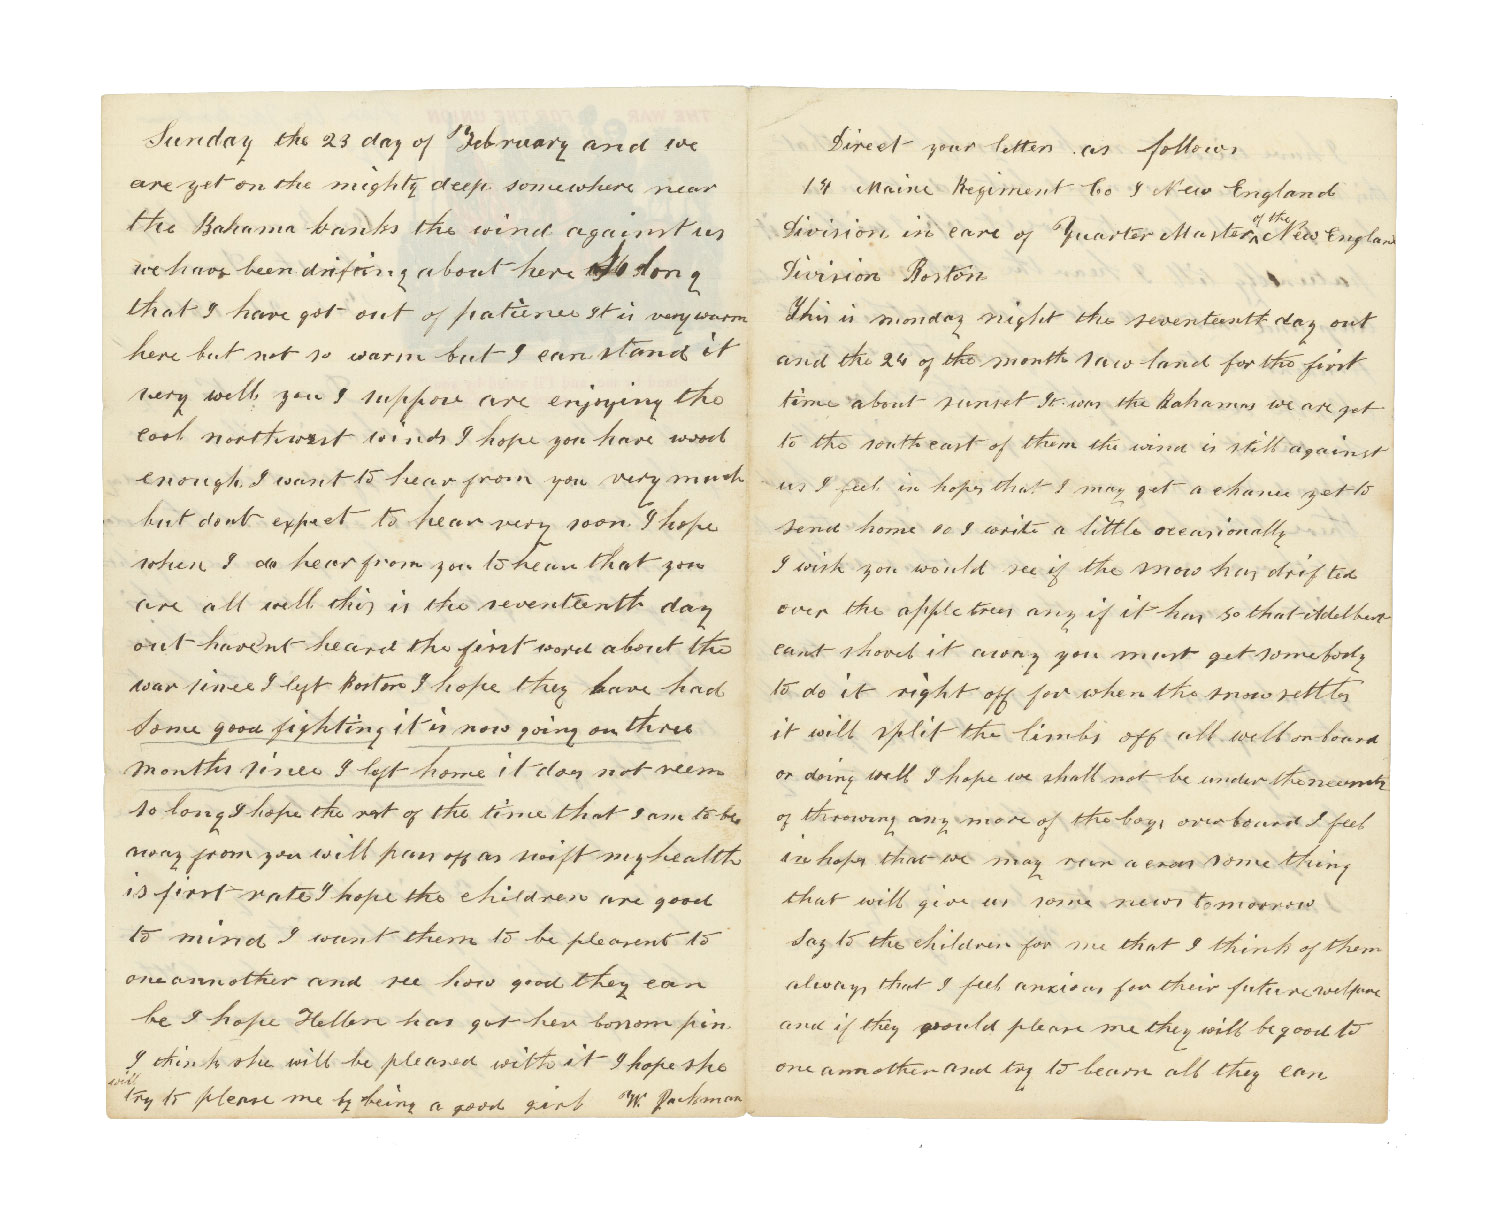 Sunday the 23 day of February and we
are yet on the mighty deep somewhere near
the Bahama banks the wind against us
we have been drifting about here so long
that I have got out of patience It is very warm
here but not so warm but I can stand it
very well you I suppose are enjoying the
cool northwest winds I hope you have wood
enough I want to hear from you very much
but dont expect to hear very soon I hope
when I do hear from you to hear that you
are all well this is the seventeenth day
out havent heard the first word about the
war since I left Boston I hope they have had
some good fighting it is now going on three
months since I left home it does not seem
so long I hope the rest of the time that I am to be
away from you will pass off as swift my health
is first rate I hope the children are good
to mind I want them to be pleasent to
one annother and see how good they can
be I hope Hellen has got her bossom pin
I think she will be pleased with it I hope she
will
try to please me by being a good girl W. Packman
Direct your letters as follows
14 Maine Regiment Co I New England
Division in care of Quarter Master of the New England
Division Boston
This is monday night the seventeenth day out
and the 24 of the month saw land for the first
time about sunset It was the Bahamas we are got
to the south east of them the wind is still against
us I feel in hopes that I may get a chance yet to
send home so I write a little occasionally
I wish you would see if the snow has drifted
over the apple trees any if it has so that Adelbert
cant shovel it away you must get somebody
to do it right off for when the snow settles
it will split the limbs off all well on board
or doing well I hope we shall not be under the
of throwing any more of the boys overboard I feel
in hopes that we may run across some thing
that will give us some news tomorrow
Say to the children for me that I think of them
always that I feel anxious for their future welfare
and if they would please me they will be good to
one annother and try to learn all they can